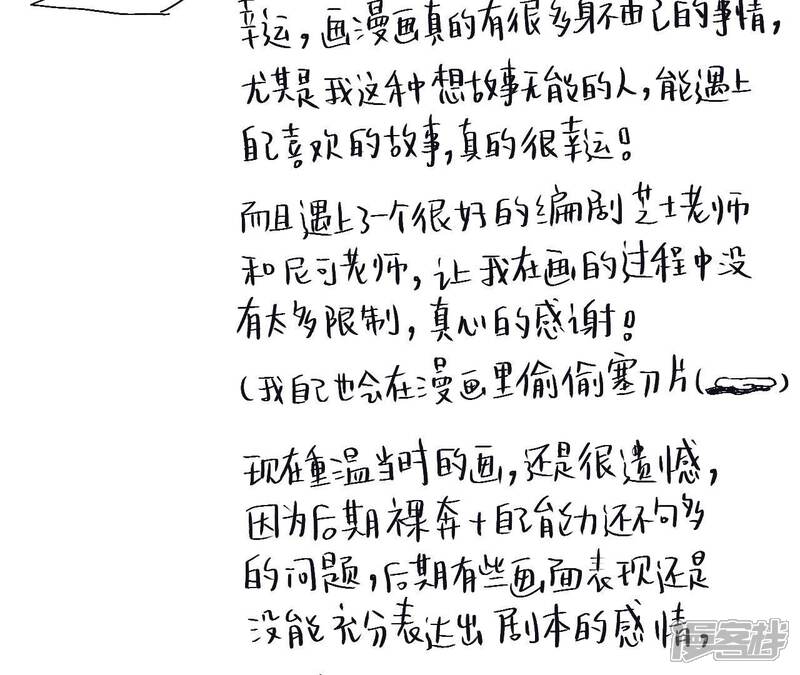 幸运，画漫画真的有很多身不由己的事情，
尤其是我这种想故事无能的人，能遇上
自己喜欢的故事，真的很幸运！
而且遇上了一个很好的编剧芝士老师
和尼可老师，让我在画的过程中没
有太多限制，真心的感谢！
（我自己也会在漫画里偷偷塞刀片（
）
现在重温当时的画，还是很遗憾，
因为后期裸奔+自己能力还不句多
的问题，后期有些画面表现还是
没能充分表达出剧本的感情，
漫客栈